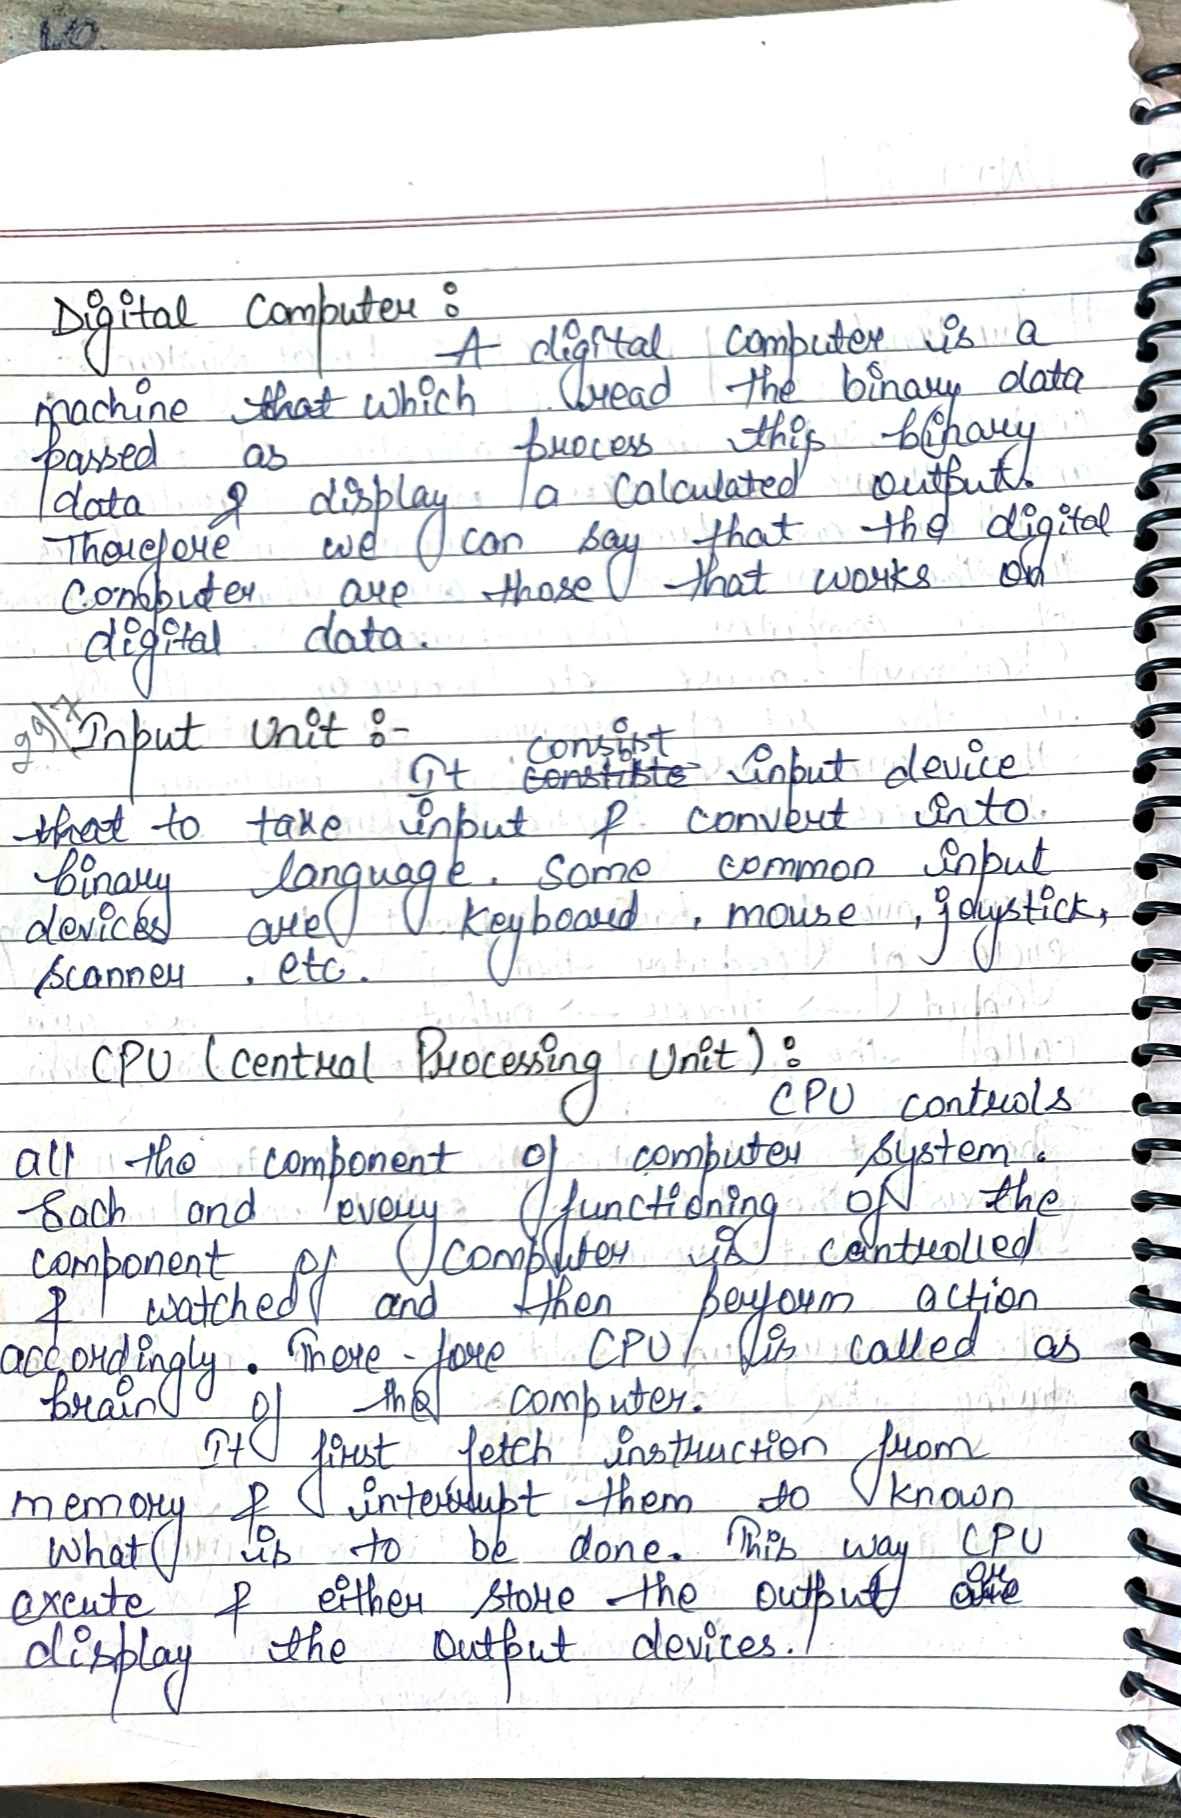 Digital Computer :
A digital computer is a
machine that which read the binary data
passed as process this binary
data & display a calculated output.
Therefore we can say that the digital
Computer are those that works on
digital data.
Input Unit :-
consist
It constists input device
that to take input & convert into
binary language. Some common input
devices are keyboard, mouse, joystick,
scanner, etc.
CPU (Central Processing Unit) :
CPU controls
all the component of computer system.
Each and every functioning of the
component of computer is controlled
& watched and then perform action
accordingly. There-fore CPU is called as
brain of the computer.
It first fetch instruction from
memory & interrupt them to known
What is to be done. This way CPU
excute & either store the output or
display the output devices.